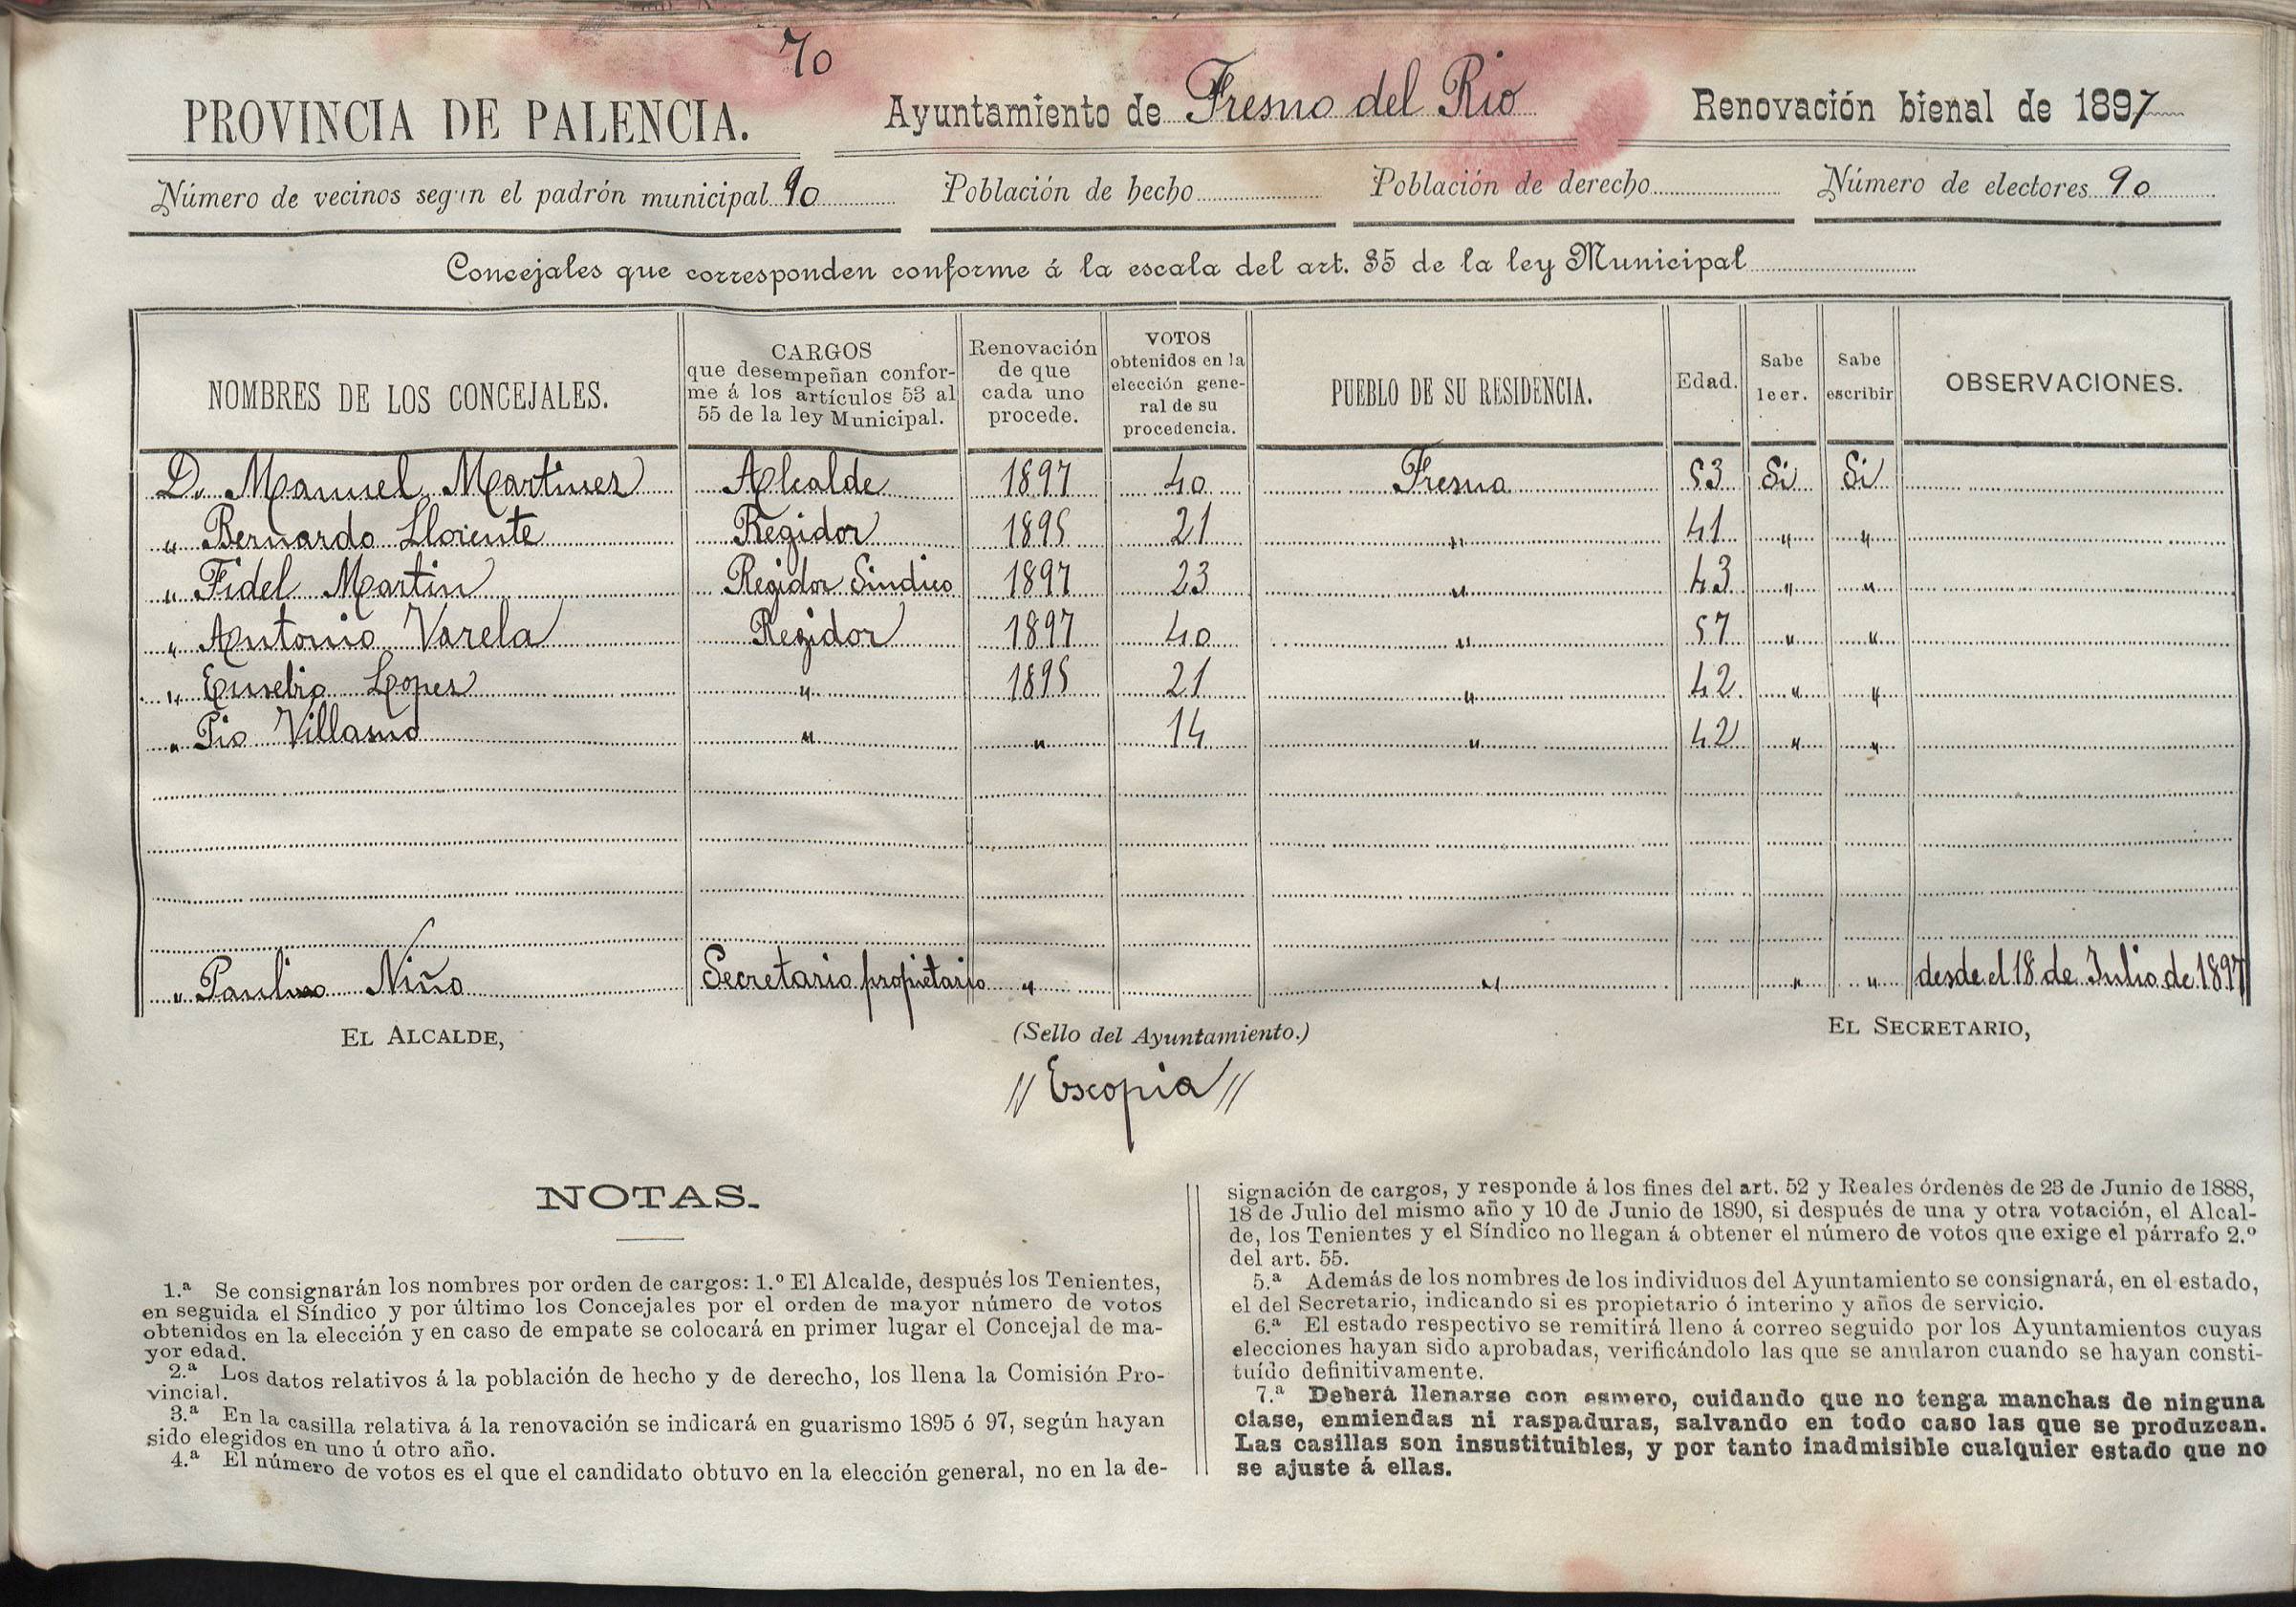 70
PROVINCIA DE PALENCIA. Ayuntamiento de Fresno del Rio Renovación bienal de 1897
Número de vecinos según el padrón municipal 90 Población de hecho Población de derecho Número de electores 90
Concejales que corresponden conforme á la escala del art. 35 de la ley Municipal
NOMBRES DE LOS CONCEJALES. CARGOS que desempeñan confor- me á los artículos 53 al 55 de la ley Municipal. Renovación de que cada uno procede. VOTOS obtenidos en la elección gene- ral de su procedencia. PUEBLO DE SU RESIDENCIA. Edad. Sabe leer. Sabe escribir OBSERVACIONES.
D. Manuel Martines Alcalde 1897 40 Fresno 53 Si Si
" Bernardo Llorente Regidor 1895 21 " 41 " "
" Fidel Martin Regidor Sindico 1897 23 " 43 " "
" Antonio Varela Regidor 1897 40 " 57 " "
" Eusebio Lopes " 1895 21 " 42 " "
" Pio Villamo " " 14 " 42 " "
" Paulino Niño Secretario propietario " " " " desde el 18 de Julio de 1897
EL ALCALDE, (Sello del Ayuntamiento.) EL SECRETARIO,
// Escopia //
NOTAS.
1.ª Se consignarán los nombres por orden de cargos: 1.º El Alcalde, después los Tenientes,
en seguida el Síndico y por último los Concejales por el orden de mayor número de votos
obtenidos en la elección y en caso de empate se colocará en primer lugar el Concejal de ma-
yor edad.
2.ª Los datos relativos á la población de hecho y de derecho, los llena la Comisión Pro-
vincial.
3.ª En la casilla relativa á la renovación se indicará en guarismo 1895 ó 97, según hayan
sido elegidos en uno ú otro año.
4.ª El número de votos es el que el candidato obtuvo en la elección general, no en la de-
signación de cargos, y responde á los fines del art. 52 y Reales órdenes de 23 de Junio de 1888,
18 de Julio del mismo año y 10 de Junio de 1890, si después de una y otra votación, el Alcal-
de, los Tenientes y el Síndico no llegan á obtener el número de votos que exige el párrafo 2.º
del art. 55.
5.ª Además de los nombres de los individuos del Ayuntamiento se consignará, en el estado,
el del Secretario, indicando si es propietario ó interino y años de servicio.
6.ª El estado respectivo se remitirá lleno á correo seguido por los Ayuntamientos cuyas
elecciones hayan sido aprobadas, verificándolo las que se anularon cuando se hayan consti-
tuído definitivamente.
7.ª Deberá llenarse con esmero, cuidando que no tenga manchas de ninguna
clase, enmiendas ni raspaduras, salvando en todo caso las que se produzcan.
Las casillas son insustituibles, y por tanto inadmisible cualquier estado que no
se ajuste á ellas.